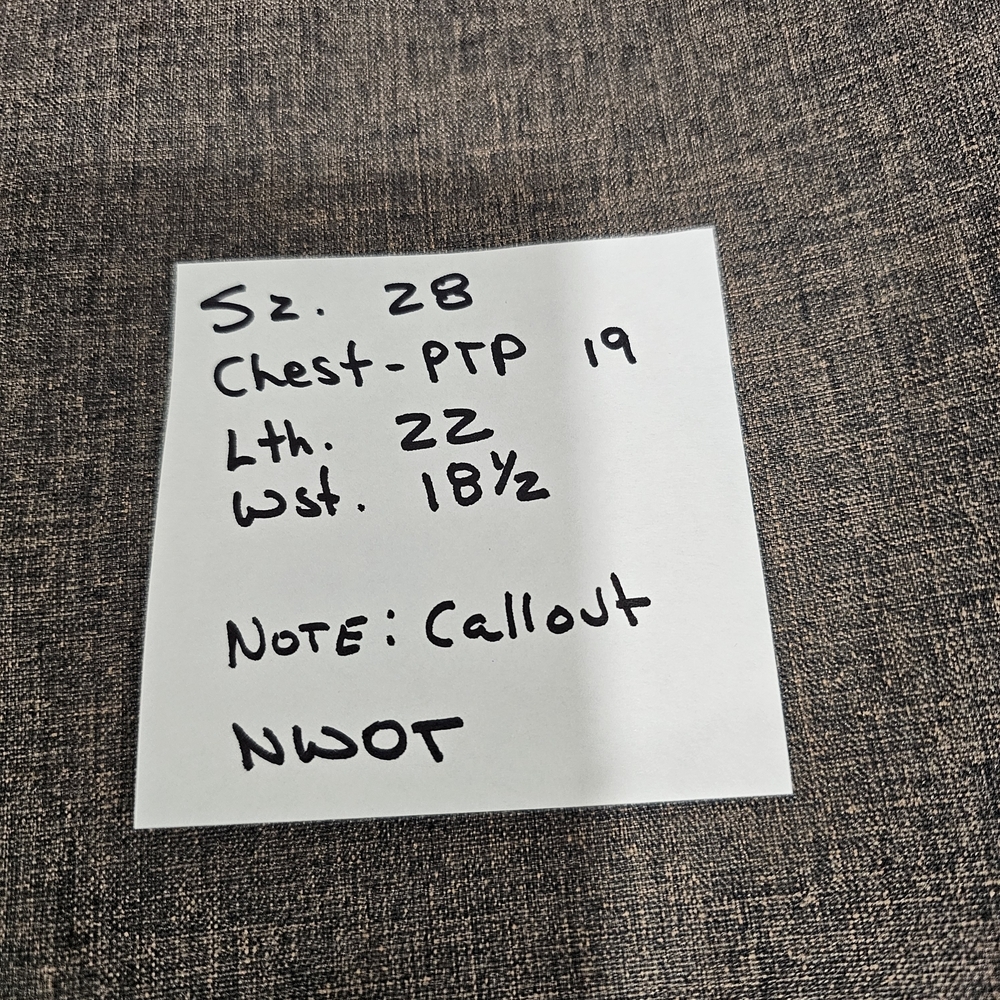 Sz. 28
Chest-PTP 19
Lth. 22
Wst. 18½
NOTE: Callout
NWOT